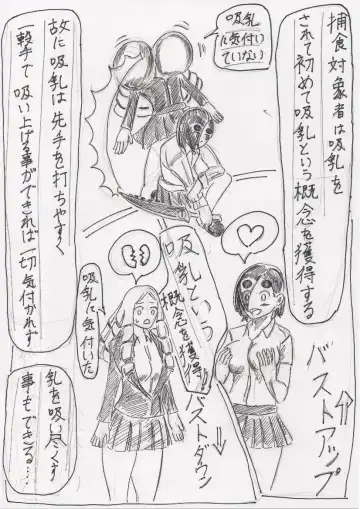 捕食対象者は吸乳を
されて初めて吸乳という概念を獲得する
吸乳
に気付い
ていない
故に吸乳は先手を打ちやすく
一撃手で吸い上げる事ができれば一切気付かれず
吸乳という
概念を獲得!!
バストアップ
バストダウン
吸乳に気付いた
乳を吸い尽くす
事もできる…